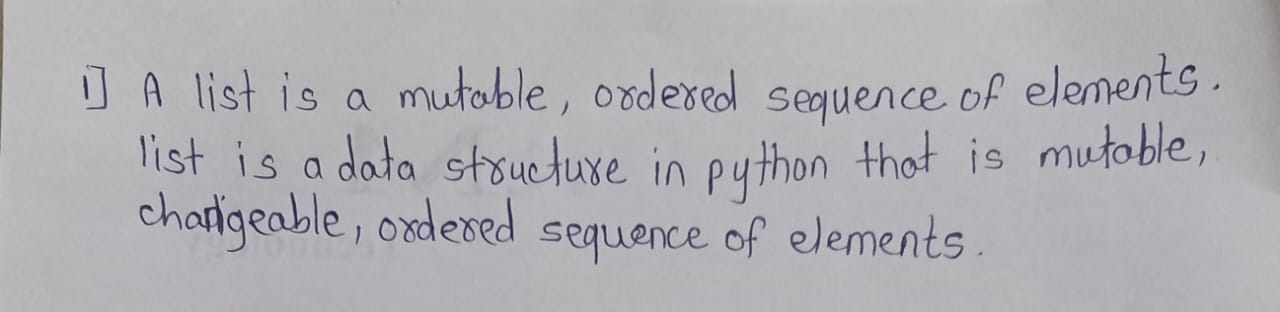 1] A list is a mutable, ordered sequence of elements.
list is a data structure in python that is mutable,
changeable, ordered sequence of elements.